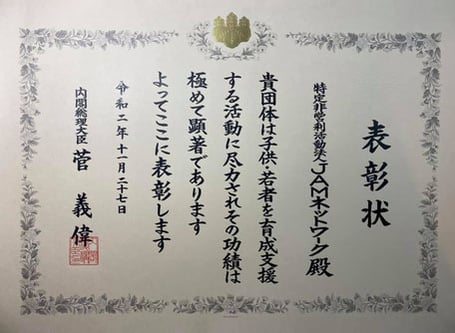 表彰状
特定非営利活動法人JAMネットワーク殿
貴団体は子供・若者を育成支援
する活動に尽力されその功績は
極めて顕著であります
よってここに表彰します
令和二年十一月二十七日
内閣総理大臣 菅 義偉